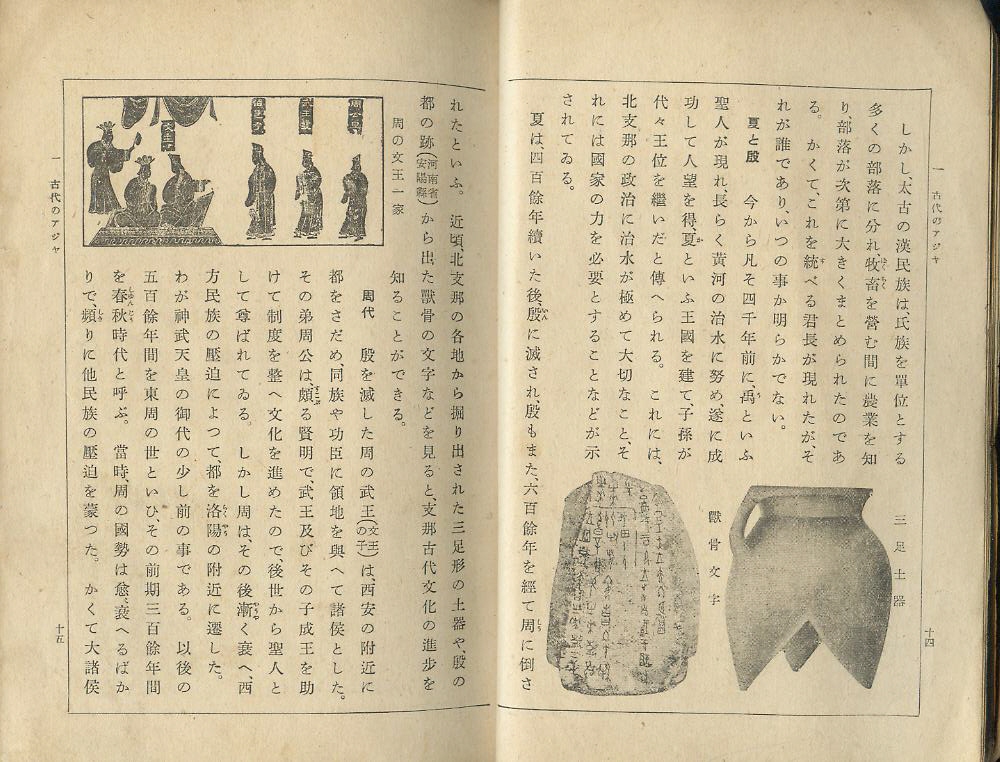 一 古代のアジヤ
十四
しかし、太古の漢民族は、氏族を單位とする
多くの部落に分れ牧畜を營む間に農業を知
り、部落が次第に大きくまとめられたのであ
る。かくて、これを統べる君長が現れたが、そ
れが誰であり、いつの事か明らかでない。
夏と殷 今から凡そ四千年前に、禹といふ
聖人が現れ、長らく黃河の治水に努め、遂に成
功して人望を得、夏といふ王國を建て、子孫が
代々王位を繼いだと傳へられる。これには、
北支那の政治に治水が極めて大切なこと、そ
れには國家の力を必要とすることなどが示
されてゐる。
三足土器
獸骨文字
夏は、四百餘年續いた後、殷に滅され、殷もまた、六百餘年を經て周に倒さ
れたといふ。近頃、北支那の各地から掘り出された三足形の土器や、殷の
都の跡(河南省安陽縣)から出た獸骨の文字などを見ると、支那古代文化の進步を
知ることができる。
周の文王一家
周公旦
武王發
文王
周代 殷を滅した周の武王(文王の子)は、西安の附近に
都をさだめ、同族や功臣に領地を與へて諸侯とした。
その弟周公は、頗る賢明で、武王及びその子成王を助
けて制度を整へ文化を進めたので、後世から聖人と
して尊ばれてゐる。しかし周は、その後漸く衰へ、西
方民族の壓迫によつて、都を洛陽の附近に遷した。
わが神武天皇の御代の少し前の事である。以後の
五百餘年間を東周の世といひ、その前期三百餘年間
を春秋時代と呼ぶ。當時、周の國勢は愈〻衰へるばか
りで、頻りに他民族の壓迫を蒙つた。かくて大諸侯
一 古代のアジヤ
十五